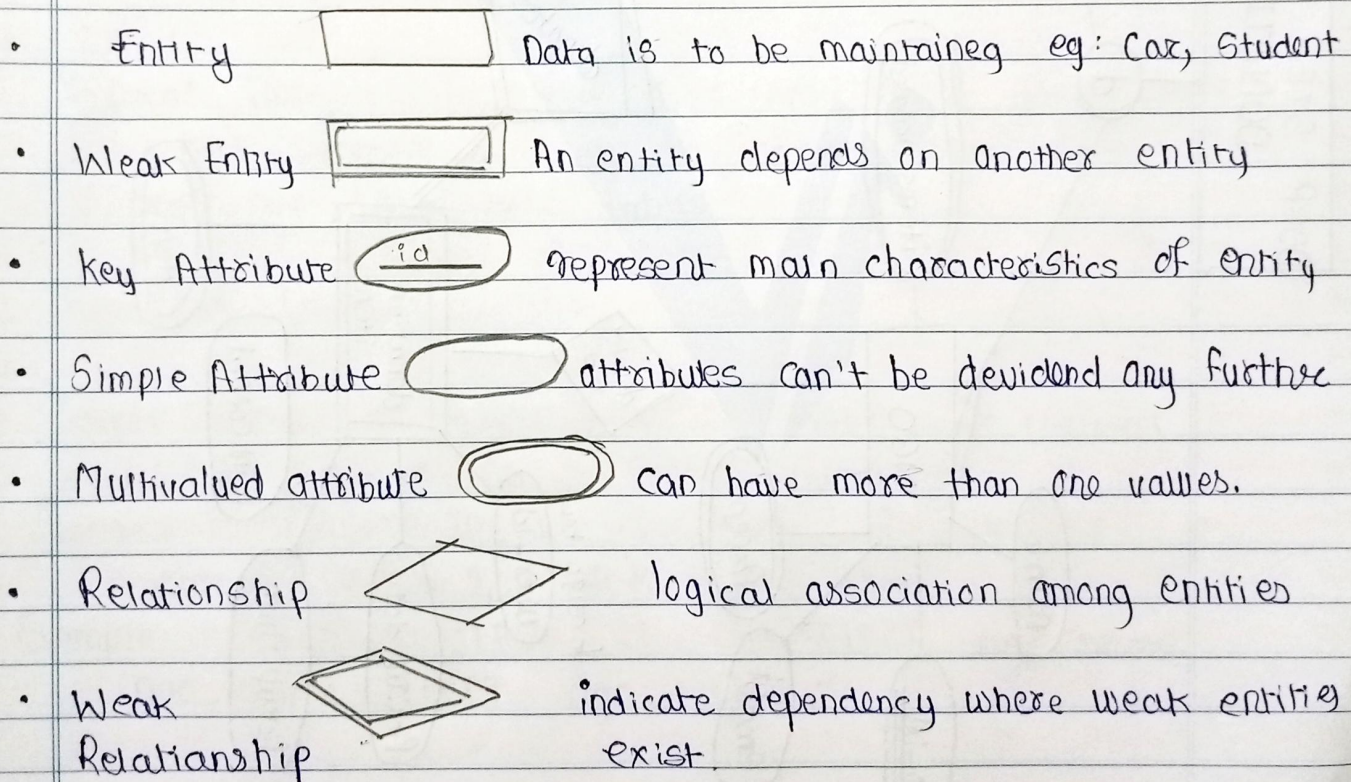 Entity Data is to be maintaineg eg: Car, Student
Weak Entity An entity depends on another entity
Key Attribute id represent main characteristics of entity
Simple Attribute attributes can't be devidend any further
Multivalued attribute can have more than one values.
Relationship logical association among entities
Weak indicate dependency where weak entities
Relationship exist.